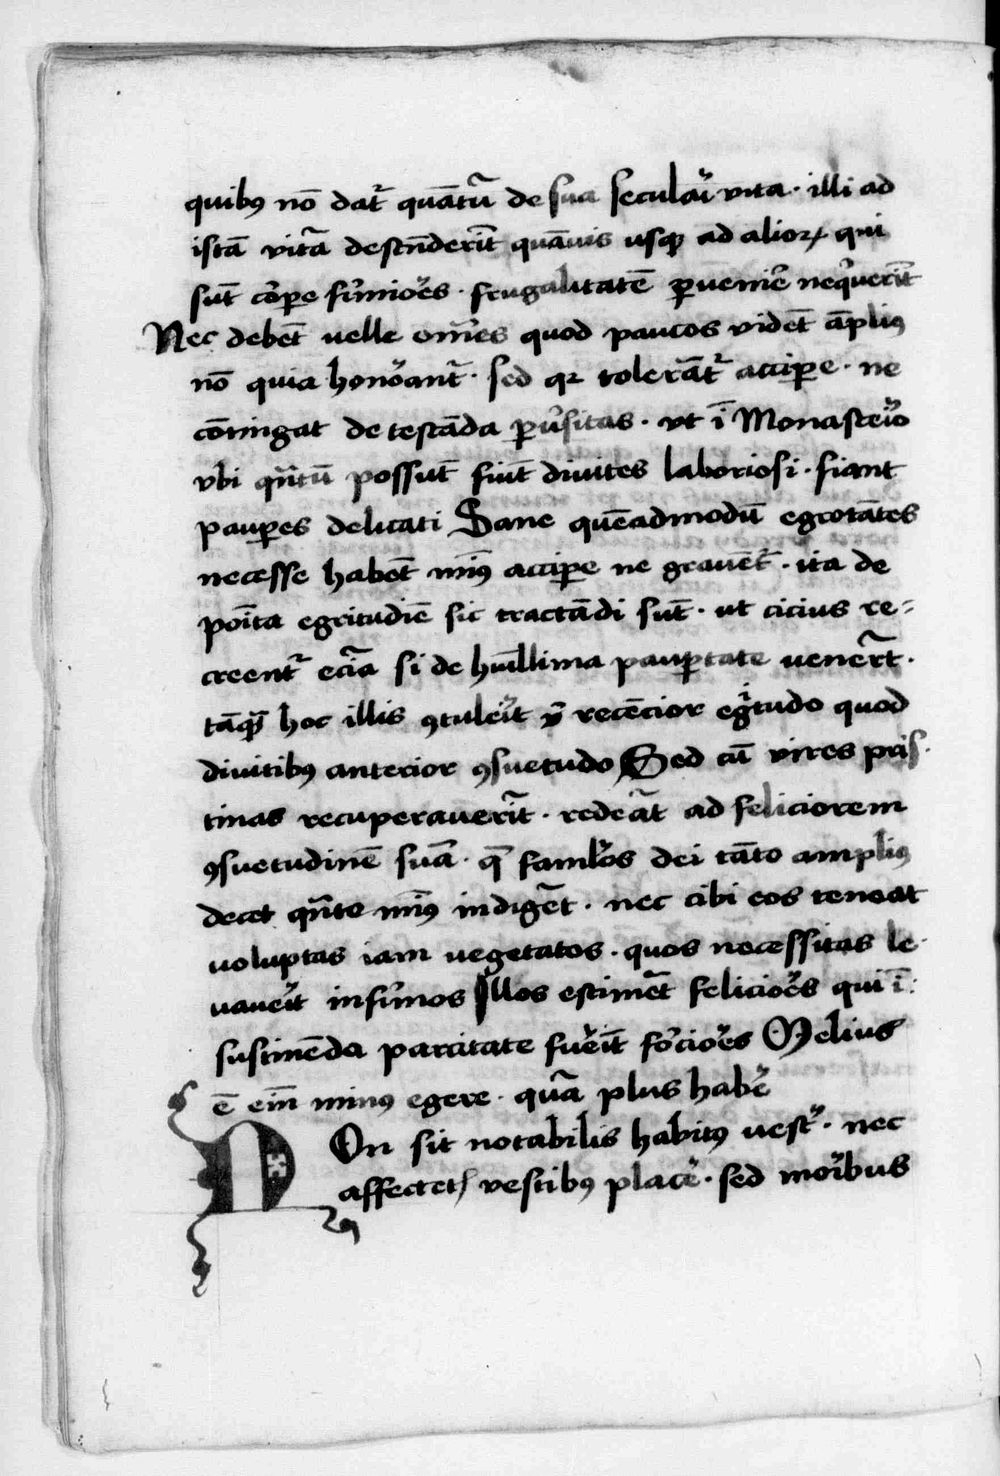 quibꝯ nō dat᷑ quātū de sua seculari vita · illi ad
istā vitā descēderīt quāuis usqꝫ ad alioꝝ qui
sūt corꝑe firmiores · frugalitatē ꝑuenire nequerīt
Nec debēt uelle om̄es quod paucos vidēt āplius
nō quia honorant᷑ · sed qꝛ tolerāt᷑ acciꝑe · ne
cōtingat detestāda ꝑuersitas · vt ī Monasterio
vbi qn̄tū possūt fiūt diuites laboriosi · fiant
pauꝑes delicati Sane quēadmodū egrotātes
necesse habēt min᷒ acciꝑe ne grauēt᷑ · ita de
post egritudīe sic tractādi sūt · ut cicius re=
creent᷑ eciā si de humillima pauꝑtate uenerīt ·
tāqꝫ hoc illis ꝯtulerit recēcior egritudo quod
diuitibꝯ anterior ꝯsuetudo Sed cū vires pris·
tinas recuperauerīt · redeāt ad feliciorem
ꝯsuetudinē suā · q̄ famulos dei tāto amplius
decet qn̄to min᷒ indigēt · nec cibi eos teneat
uoluptas iam uegetatos · quos necessitas le·
uauerit infirmos Illos estimēt feliciores qui ī:
sustinēda parcitate fuerīt forciores Melius
ē eīm minus egere · quā plus habere
NOn sit notabilis habitꝯ uester · nec
affectetis vestibꝯ placere · sed moribus